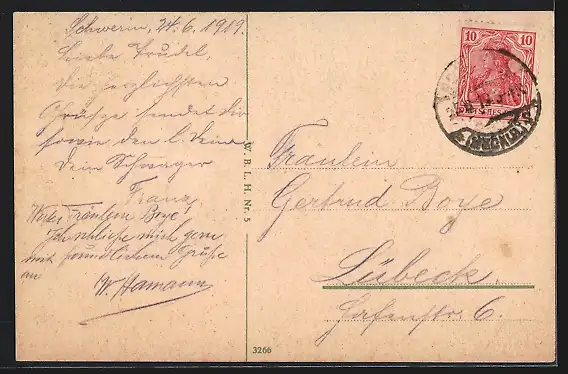 Schwerin, 24.6.1919.
Liebe Trudel.
Die herzlichsten
Grüsse sendet Dir
sowie den l. Deinen
Dein Schwager
Franz,
Wertes Fräulein Boye,
Ich schließe mich gern
mit freundlichem Gruße
an
W. Hamann
W. B. L. H. Nr. 5
3266
10 10
Fräulein
Gertrud Boye
Lübeck.
Hafenstr 6.